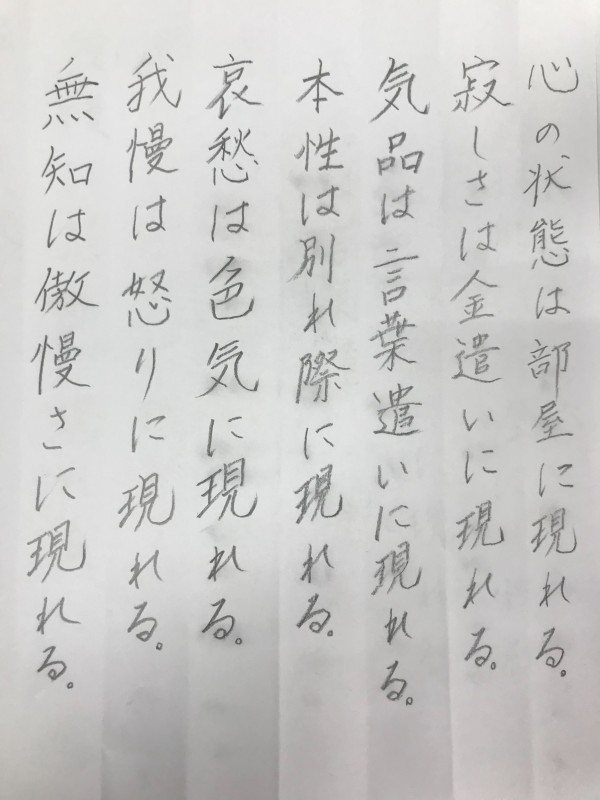 心の状態は部屋に現れる。
寂しさは金遣いに現れる。
気品は言葉遣いに現れる。
本性は別れ際に現れる。
哀愁は色気に現れる。
我慢は怒りに現れる。
無知は傲慢さに現れる。